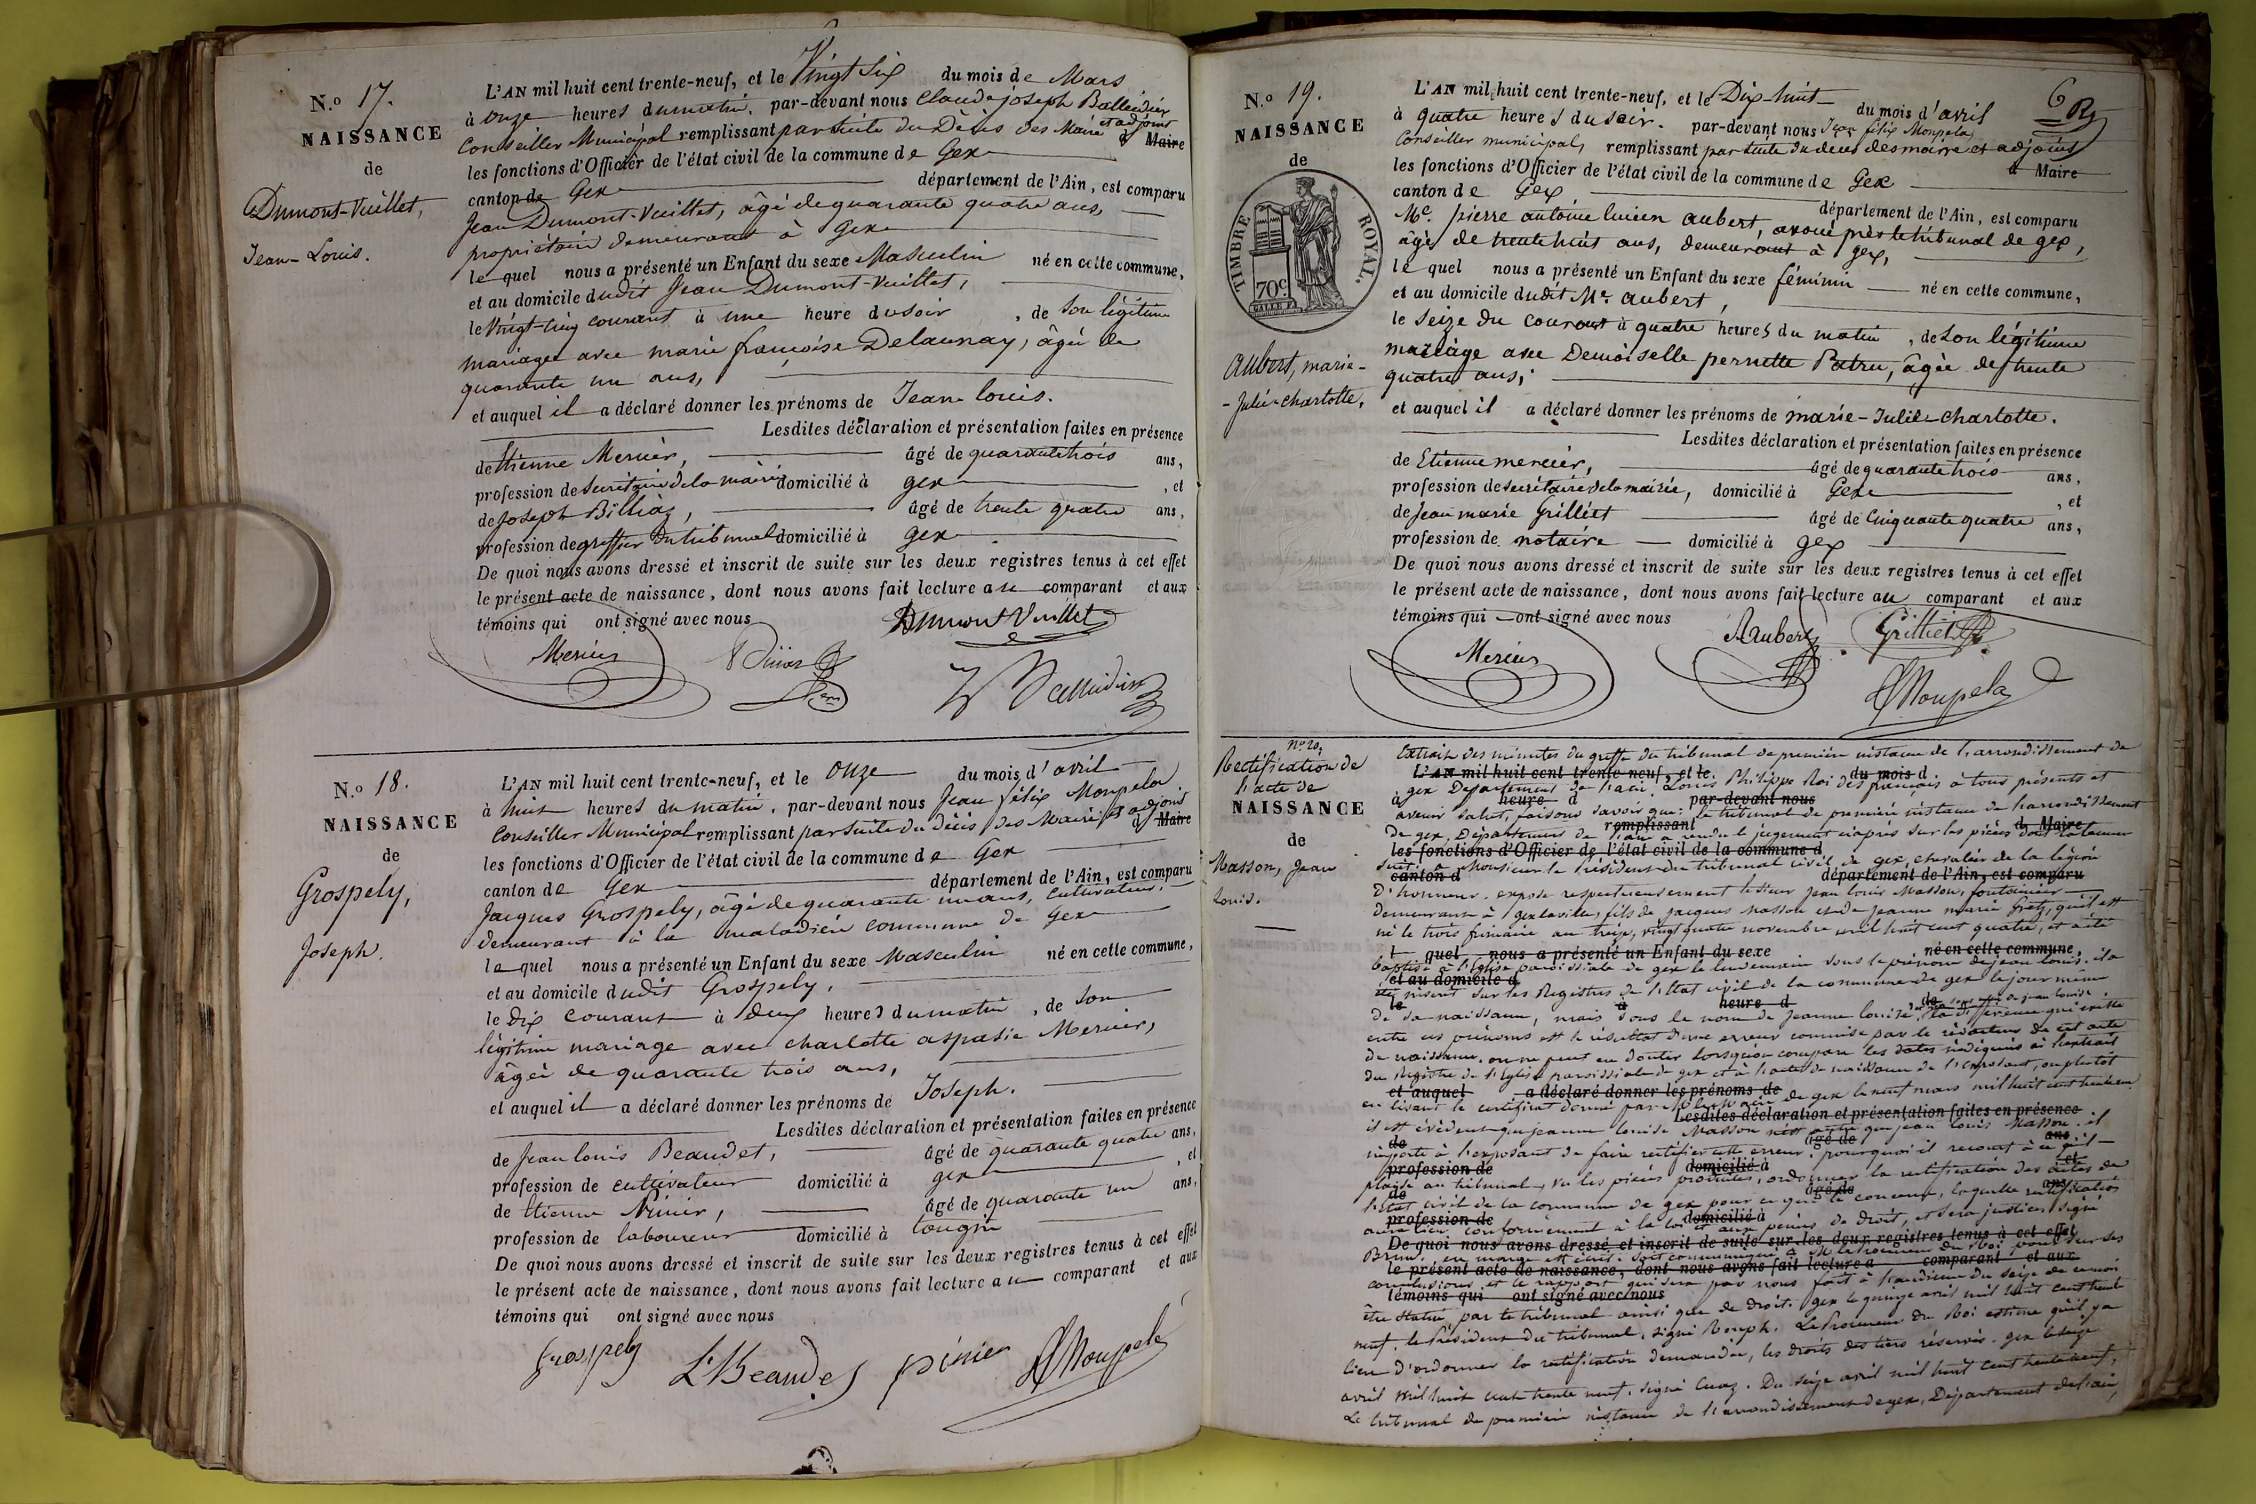 N.o 17.
NAISSANCE
de
Dumont-Vuillet,
Jean-Louis.
L'AN mil huit cent trente-neuf, et le Vingt Six du mois de Mars
à onze heures du matin, par-devant nous Claude joseph Balleidier
Conseiller Municipal remplissant par suite du Décès des Maire et adjoint d Maire
les fonctions d'Officier de l'état civil de la commune de Gex
canton de Gex département de l'Ain, est comparu
Jean Dumont-Vuillet, âgé de quarante quatre ans,
propriétaire demeurant à Gex
lequel nous a présenté un Enfant du sexe Masculin né en cette commune,
et au domicile dudit Jean Dumont-Vuillet,
le Vingt-cinq courant à une heure du soir, de son légitime
mariage avec marie françoise Delaunay, âgée de
quarante un ans,
et auquel il a déclaré donner les prénoms de Jean Louis.
Lesdites déclaration et présentation faites en présence
de Etienne Mercier, âgé de quarante trois ans,
profession de Secrétaire de la mairie domicilié à gex, et
de Joseph Billiaz, âgé de trente quatre ans,
profession de greffier du tribunal domicilié à gex
De quoi nous avons dressé et inscrit de suite sur les deux registres tenus à cet effet
le présent acte de naissance, dont nous avons fait lecture au comparant et aux
témoins qui ont signé avec nous
Dumont Vuillet
Mercier
Balleidier
N.o 18.
NAISSANCE
de
Grospely,
Joseph.
L'AN mil huit cent trente-neuf, et le onze du mois d'avril
à huit heures du matin, par-devant nous Jean félix Monpela
Conseiller Municipal remplissant par suite du décès des Maire et adjoint d Maire
les fonctions d'Officier de l'état civil de la commune de Gex
canton de Gex département de l'Ain, est comparu
Jacques Grospely, âgé de quarante un ans, cultivateur,
demeurant à la maladière commune de Gex
lequel nous a présenté un Enfant du sexe Masculin né en cette commune,
et au domicile dudit Grospely,
le Dix courant à deux heures du matin, de son
légitime mariage avec charlotte aspasie Mercier,
âgée de quarante trois ans,
et auquel il a déclaré donner les prénoms de Joseph.
Lesdites déclaration et présentation faites en présence
de Jean Louis Beaudet, âgé de quarante quatre ans,
profession de cultivateur domicilié à gex, et
de Etienne âgé de quarante un ans,
profession de laboureur domicilié à Cougny
De quoi nous avons dressé et inscrit de suite sur les deux registres tenus à cet effet
le présent acte de naissance, dont nous avons fait lecture au comparant et aux
témoins qui ont signé avec nous
Grospely L Beaudet Monpela
N.o 19.
NAISSANCE
de
TIMBRE ROYAL.
70c.
Aubert, marie-
-Julie-charlotte,
L'AN mil huit cent trente-neuf, et le Dix-huit du mois d'avril
à quatre heures du soir, par-devant nous Jean félix Monpela
Conseiller municipal, remplissant par suite du décès des maire et adjoint d Maire
les fonctions d'Officier de l'état civil de la commune de Gex
canton de Gex département de l'Ain, est comparu
Me. pierre antoine lucien aubert, avoué près le tribunal de gex,
âgé de trente huit ans, demeurant à gex,
lequel nous a présenté un Enfant du sexe féminin né en cette commune,
et au domicile dudit Me. aubert,
le Seize du courant à quatre heures du matin, de son légitime
mariage avec Demoiselle pernette Patru, âgée de trente
quatre ans,
et auquel il a déclaré donner les prénoms de marie-Julie-charlotte.
Lesdites déclaration et présentation faites en présence
de Etienne mercier, âgé de quarante trois ans,
profession de secrétaire de la mairie, domicilié à Gex, et
de Jean marie Grilliet âgé de Cinquante quatre ans,
profession de notaire domicilié à gex
De quoi nous avons dressé et inscrit de suite sur les deux registres tenus à cet effet
le présent acte de naissance, dont nous avons fait lecture au comparant et aux
témoins qui ont signé avec nous
Aubert Grilliet
Mercier
Monpela
No 20,
Rectification de
l'acte de
NAISSANCE
de
Masson, Jean
Louis.
Extrait des minutes du greffe du tribunal de première instance de l'arrondissement de
L'AN mil huit cent trente-neuf, et le du mois d
gex Département de l'ain. Louis Philippe Roi des français à tous présents et
à heure d par-devant nous
avenir salut, faisons savoir que le tribunal de première instance de l'arrondissement
remplissant d Maire
de gex, Département de l'ain a rendu le jugement ciaprès sur les pièces dont la teneur
les fonctions d'Officier de l'état civil de la commune d
suit. à Monsieur le Président du tribunal civil de gex, chevalier de la légion
canton d département de l'Ain, est comparu
D'honneur. expose respectueusement le sieur Jean Louis Masson,
demeurant à gex la ville, fils de Jacques Masson et de Jeanne marie qu'il est
né le trois frimaire an treize, vingt quatre novembre mil huit cent quatre, et a été
l quel nous a présenté un Enfant du sexe né en cette commune,
baptisé à l'église paroissiale de gex le lendemain sous le prénom de jean louis. il a
et au domicile d
été inscrit sur les Registres de l'Etat civil de la commune de gex le jour même
le à heure d de
de sa naissance, mais sous le nom de jeanne louise la différence qui existe
entre ces prénoms est le résultat d'une erreur commise par le rédacteur de cet acte
de naissance. on ne peut en douter lorsqu'on compare les dates indiquées à l'extrait
du Registre de l'Eglise paroissiale de gex et à l'acte de naissance de l'exposant, ou plutôt
et auquel a déclaré donner les prénoms de
en lisant le certificat donné par Mr le Maire de gex le neuf mars mil huit cent
Lesdites déclaration et présentation faites en présence
il est évident que jeanne louise Masson n'est autre que jean louis Masson. il
de âgé de ans
importe à l'exposant de faire rectifier cette erreur. pourquoi il recourt à ce qu'il
profession de domicilié à et
plaise au tribunal, vu les pièces produites, ordonner la rectification des actes de
de âgé de ans
l'Etat civil de la commune de gex pour ce qui le concerne, laquelle rectification
profession de domicilié à
aura lieu conformément à la loi et aux peines de droit, et sera justice. signé
De quoi nous avons dressé et inscrit de suite sur les deux registres tenus à cet effet
en marge est écrit: soit communiqué à Mr le procureur du Roi pour sur ses
le présent acte de naissance, dont nous avons fait lecture a comparant et aux
conclusions et le rapport qui sera par nous fait à l'audience du seize de ce mois
témoins qui ont signé avec nous
être statué par le tribunal ainsi que de droit. gex le quinze avril mil huit cent trente
neuf. le Président du tribunal, signé Rouph. Le Procureur du Roi estime qu'il y a
lieu d'ordonner la rectification demandée, les droits des tiers réservés. gex le seize
avril mil huit cent trente neuf. signé Cuaz. Du seize avril mil huit cent trente neuf,
Le tribunal de première instance de l'arrondissement de gex, Département de l'ain,